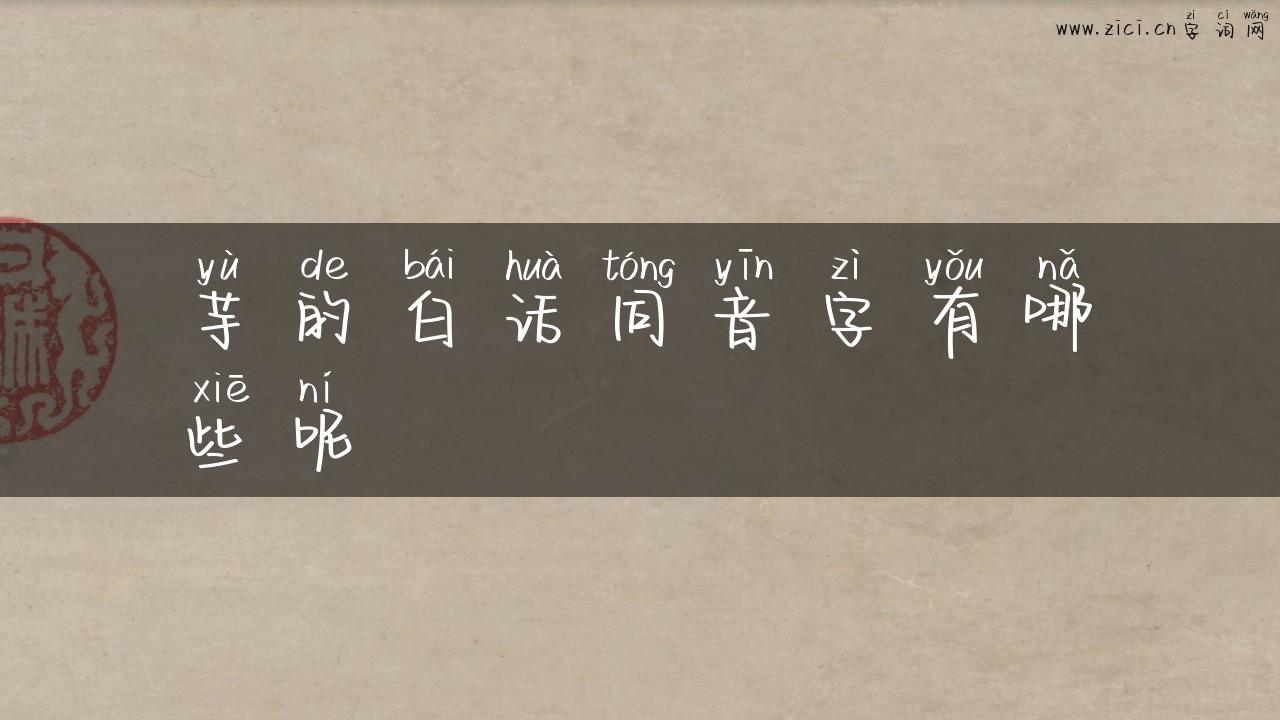 zì cí wǎng
www.zici.cn字词网
yù de bái huà tóng yīn zì yǒu nǎ
芋的白话同音字有哪
xiē ní
些呢